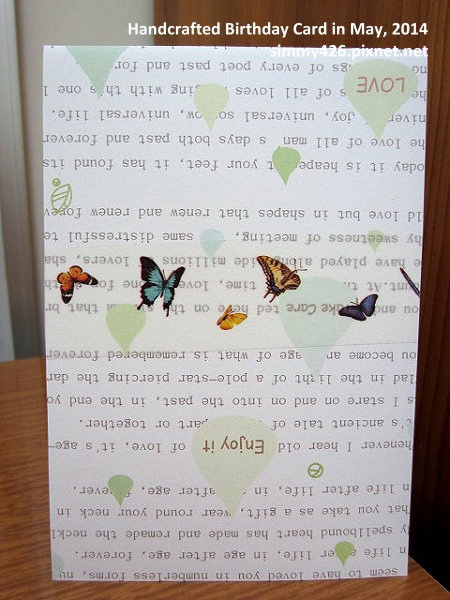 Handcrafted Birthday Card in May, 2014
simmy426.pixnet.net
seem to have loved you in numberless forms, nu
n life after life, in age after age, forever.
y spellbound heart has made and remade the neckl
hat you take as a gift, wear round your neck in
n life after life, in age after age, forever.
henever I hear old of love, it's age-
t's ancient tale of part or together.
s I stare on and on into the past, in the end yo
lad in the light of a pole-star piercing the dar
ou become an age of what is remembered forever
Enjoy it
ou ted here on th st m that br
Take Care
ount.At th time, love of one
e have played along side millions lovers, sha
hy sweetness of meeting, same distressful te
ld love but in shapes that renew and renew forev
oday it is heape t your feet, it has found its
he love of all man s days both past and forever
niver joy, universal sorrow, universal life.
he s of all loves rging with this one l
gs of every poet past and forev
LOVE